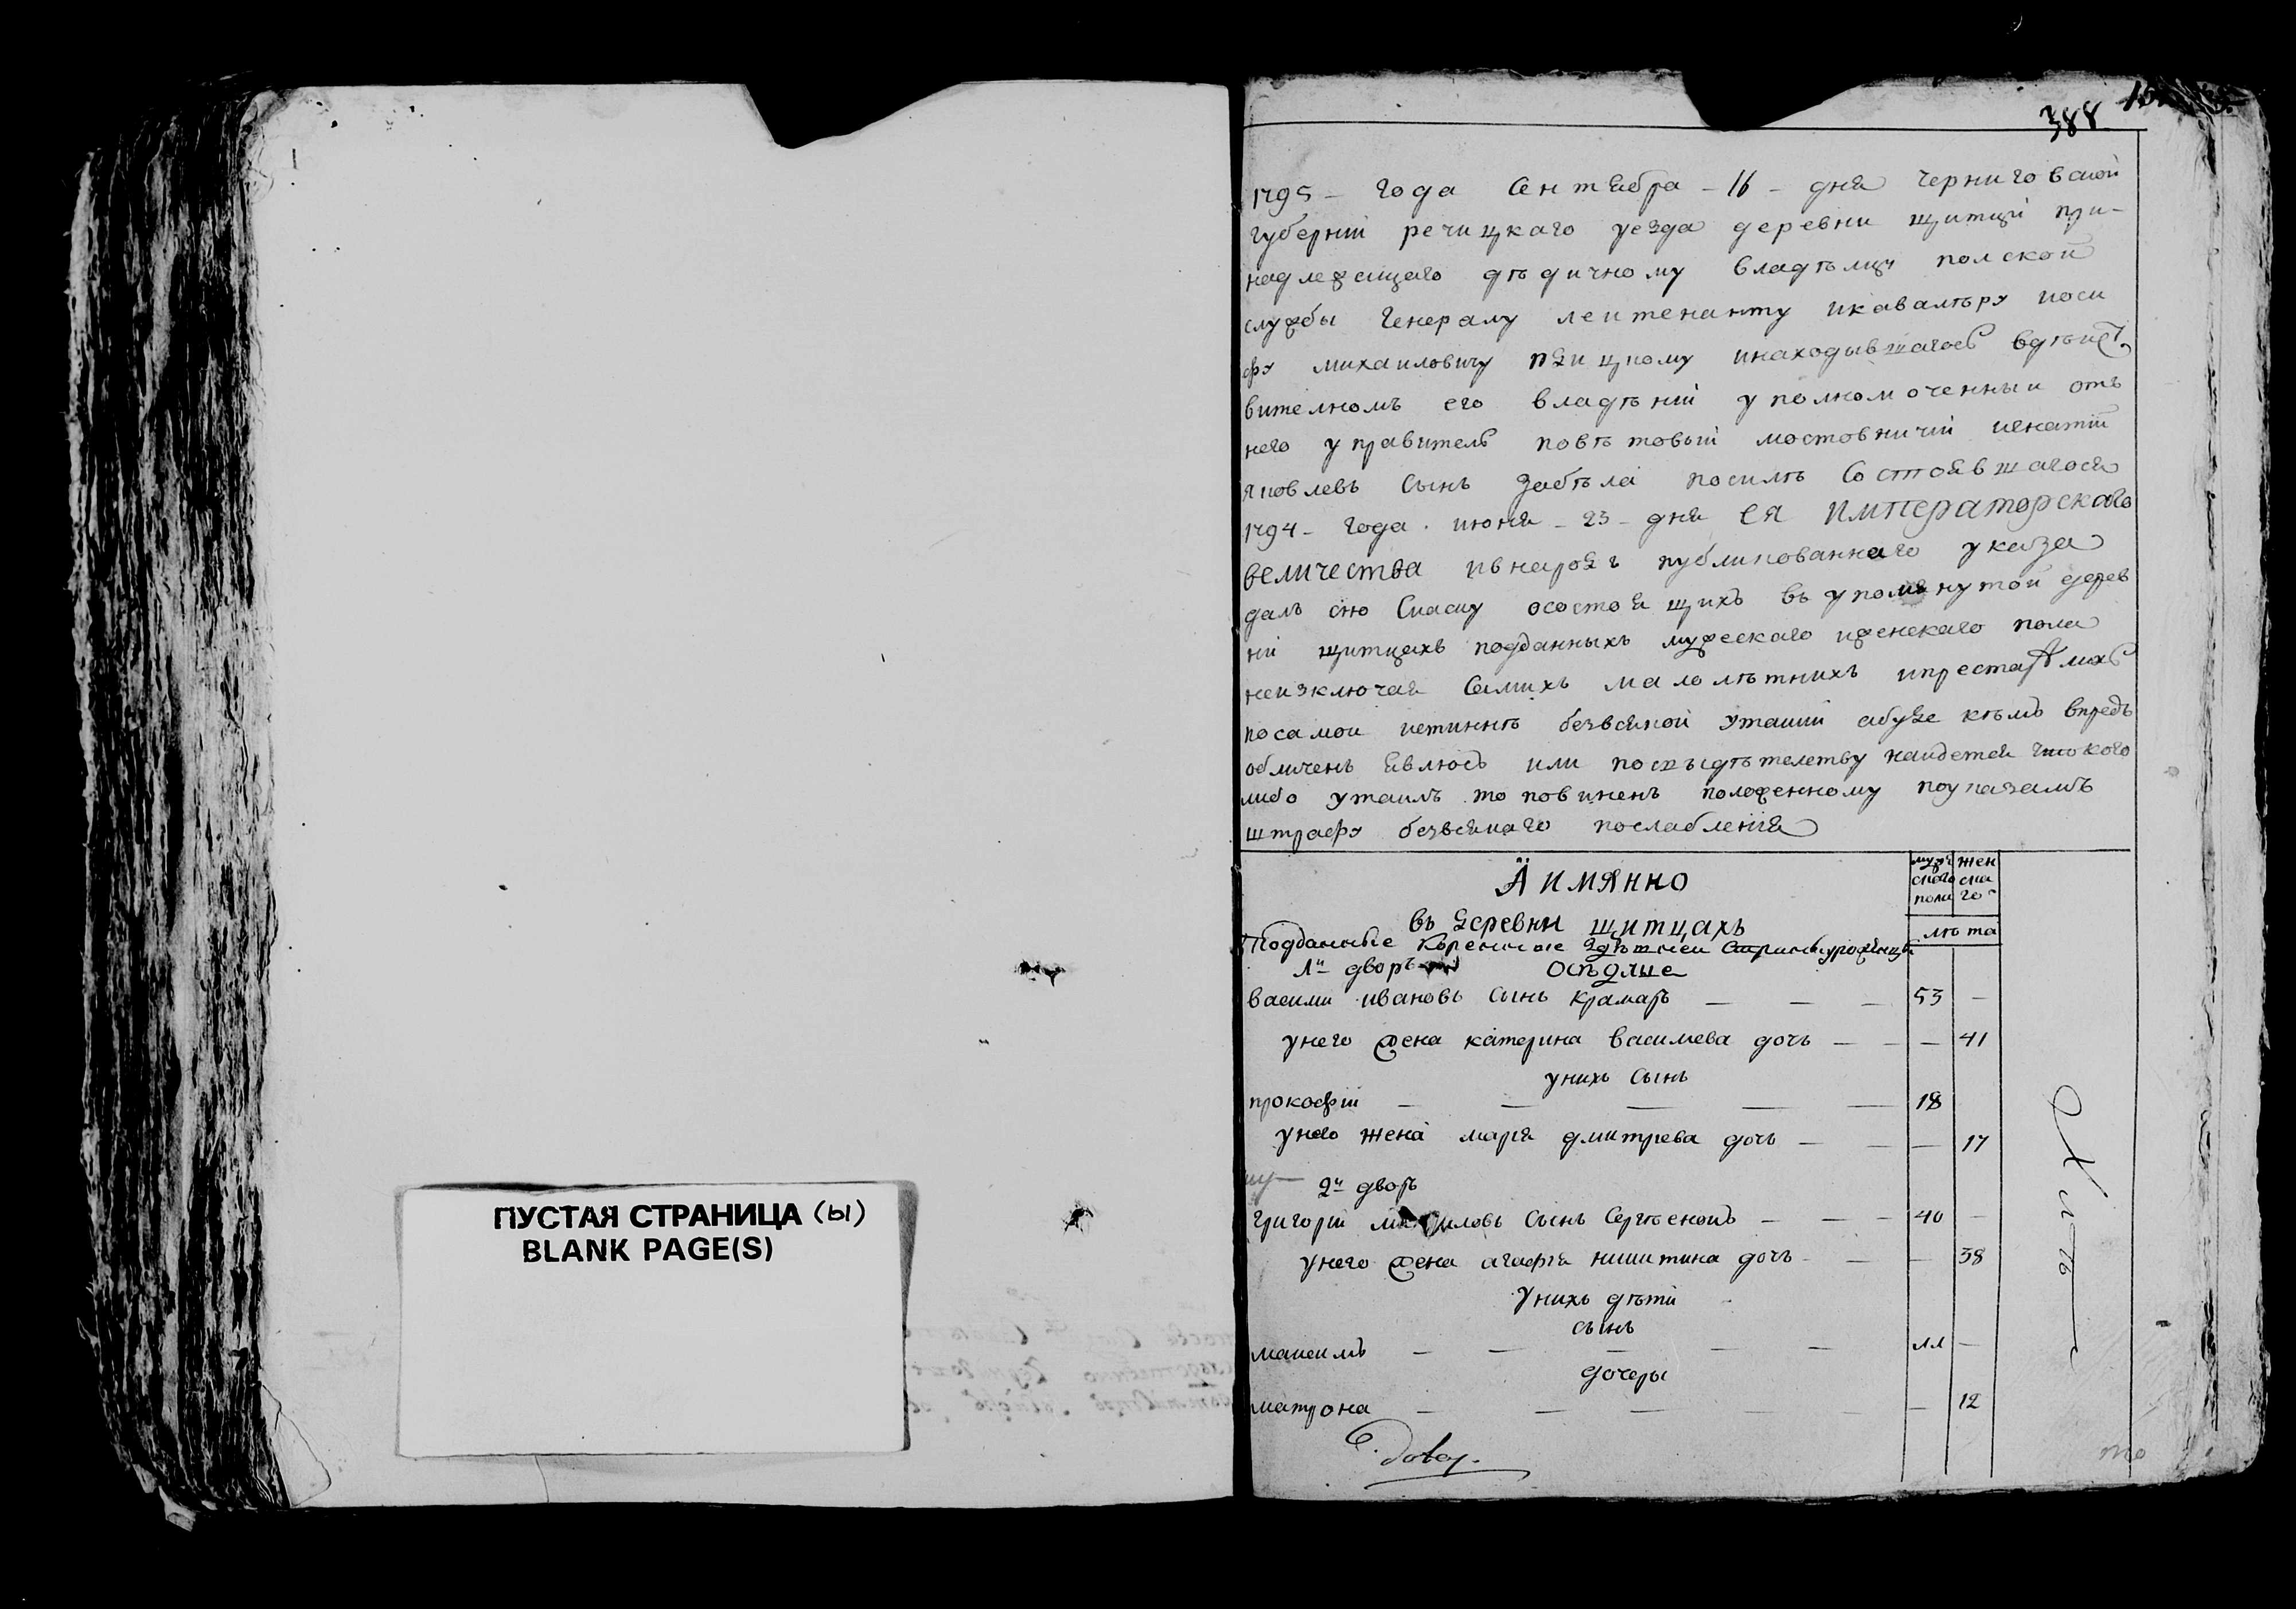 ПУСТАЯ СТРАНИЦА (ы)
BLANK PAGE(S)
388
1795 – года Сентября – 16 – дня черниговской
губернїи речицкаго уезда деревни щитци при-
надлежащаго дѣдичному владѣлцу полской
службы Генералу леитенанту икавалѣру иоси
фу михаиловичу инаходывшагось вдѣист
вителномъ его владѣнїи уполномоченныи отъ
него управитель повѣтовый мостовничїй игнатїй
яковлевъ сынъ Забѣла посилѣ Состоявшагося
1794 – года июня – 23 – дня ея императорскаго
величества ивнародъ публикованнаго указа
далъ сию Скаску осостоящихъ въ упомянутой дерев
ни щитцахъ подданныхъ мужескаго иженскаго пола
неизключая Самихъ малолѣтнихъ ипрестарѣлихъ
посамои истиннѣ безвсякой утаиїи абуде кѣмъ впредь
обличенъ явлюсь или посвидѣтелству наидется чтокого
либо утаилъ то повиненъ положенному поуказамъ
штрафу безвсякаго послабленїя
А имянно
мужескаго пола
женскаго
въ деревни щитцахъ
лѣта
Подданные Коренные
1й дворъ осѣдлые
василии ивановъ сынъ крамаръ — — — 53 —
унего жена катерина василиева дочь — — — 41
унихъ сынъ
прокофїи — — — — — 18
унего жена марїя дмитрева дочь — — — 17
2й дворъ
григорїи сынъ Сергѣенокъ — — — 40 —
унего жена агафїя никитина дочь — — — 38
унихъ дѣти
сынъ
максимъ — — — — — 11 —
дочеры
матрона — — — — — — 12